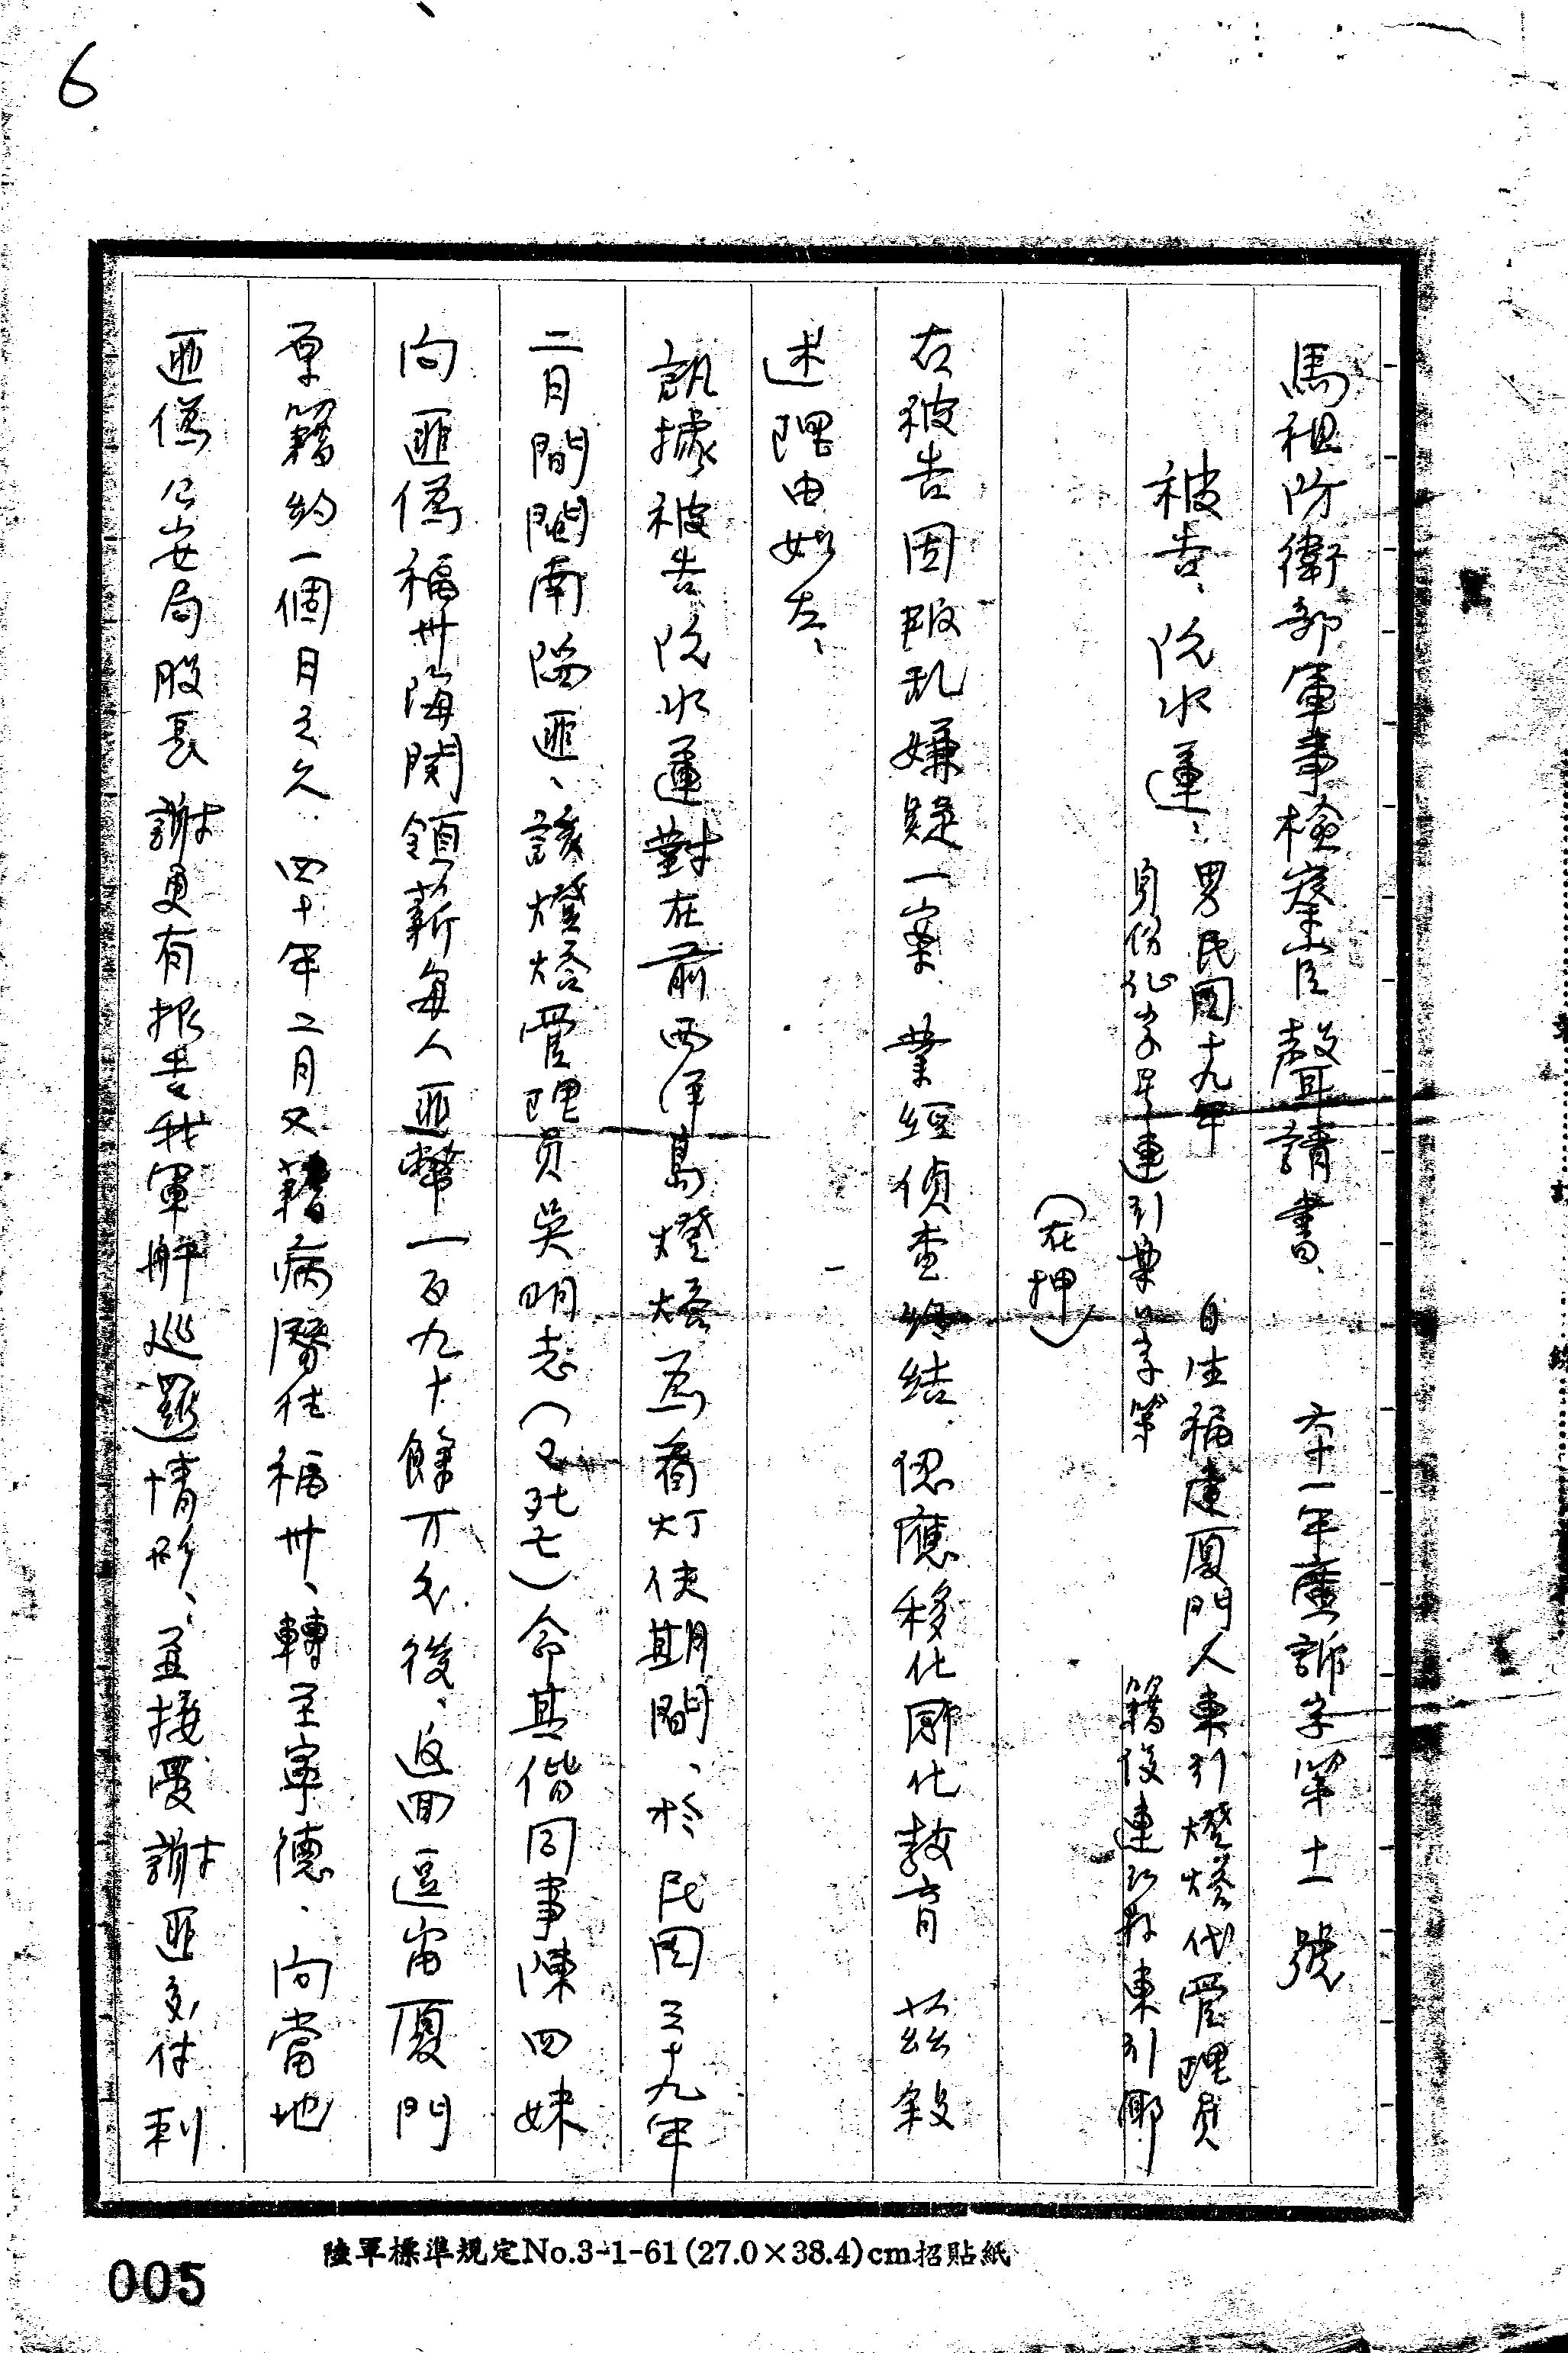 6
馬祖防衛部軍事檢察官聲請書 六十一年廬訴字第十一號
被告、阮水蓮、男民國十九年 自生福建廈門人東引燈塔代管理員
身份证字号連引東字第 籍設連江縣東引鄉
(在押)
右被告因叛乱嫌疑一案業經偵查終結認應移化部化教育茲敘
述理由如左、
訊據被告阮水蓮對在前西洋島燈塔為看灯使期間、於民国三十九年
二月間閩南陷匪、該燈塔管理員吳明志(已死亡)命其偕同事陳四妹
向匪偽福州海関領薪每人匪幣一百九十餘万元後、返回逗留廈門
原籍約一個月之久.四十年二月又藉病醫往福州、轉至寧德.向當地
匪偽公安局股長謝更有报告我軍舺巡邏情形、並接受謝匪交付刺
陸軍標準規定No.3-1-61(27.0×38.4)cm招貼紙
005